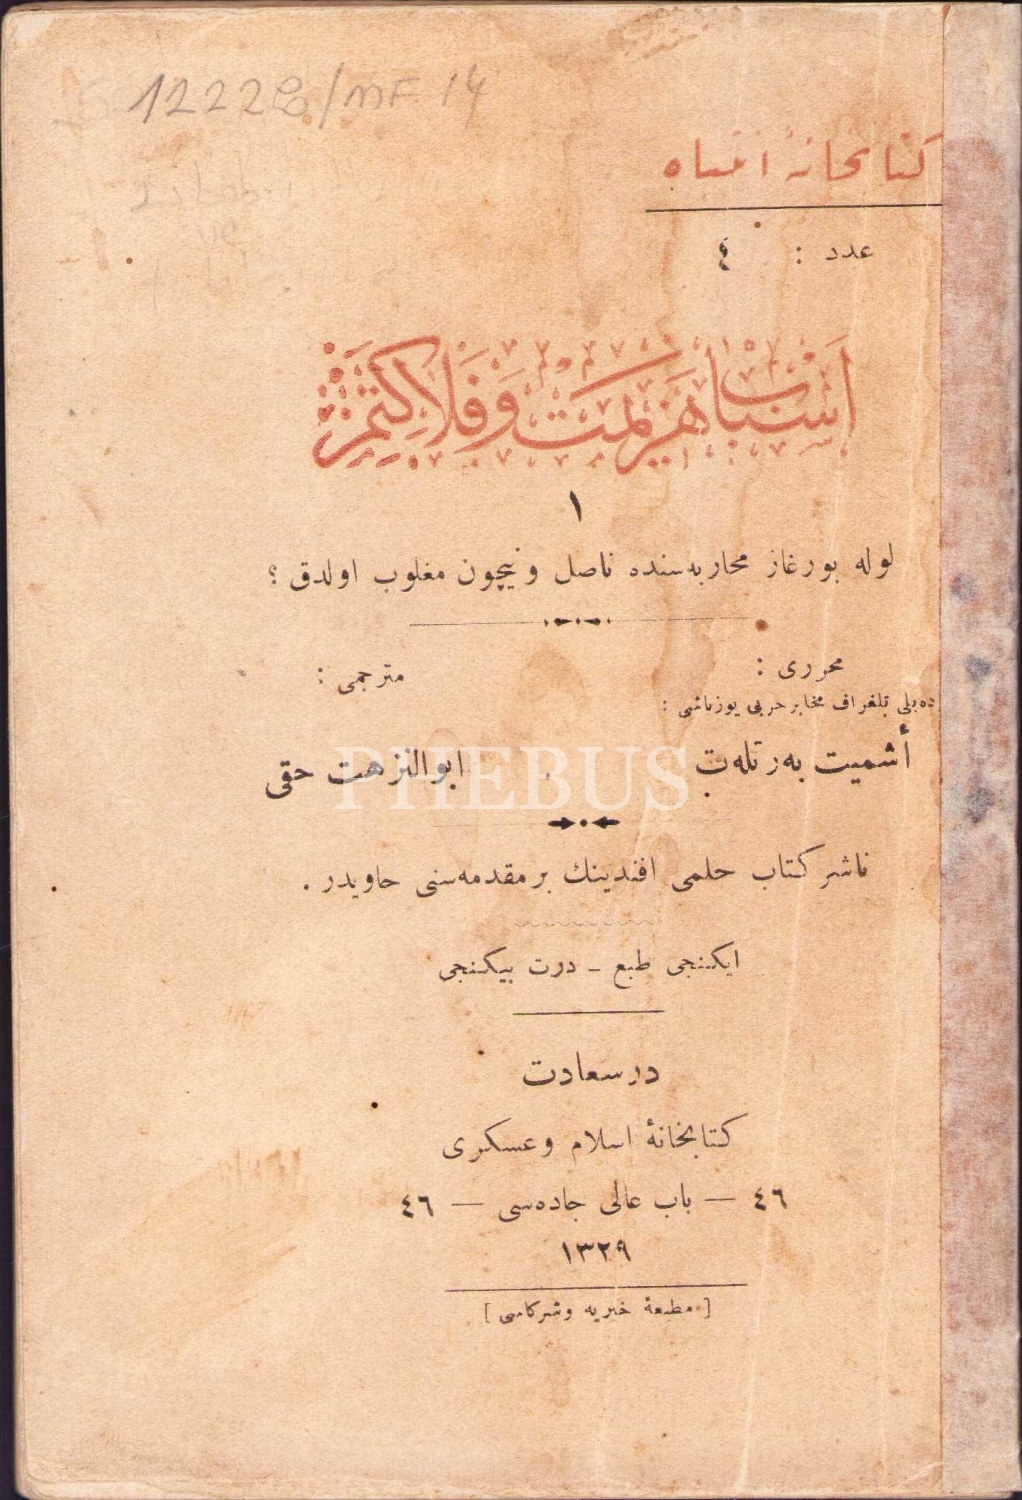 12228/MF 14
كتابخانهٔ انتباه
عدد : ٤
اَسْبَابِ هَزِيمَتْ وَ فَلَاكِتِمِزْ
١
لوله بورغاز محاربه‌سنده ناصل و نیچون مغلوب اولدق ؟
محرری :
ده‌یلی تلغراف مخابر حربی یوزباشی :
أشمیت به‌رتله‌ت
مترجمی :
ابوالنزهت حقی
PHEBUS
ناشر کتاب حلمی افندینك بر مقدمه‌سنی حاویدر .
ایکنجی طبع ـ درت بیکنجی
درسعادت
کتابخانهٔ اسلام وعسکری
٤٦ — باب عالی جاده‌سی — ٤٦
١٣٢٩
[ مطبعهٔ خیریه وشرکاسی ]